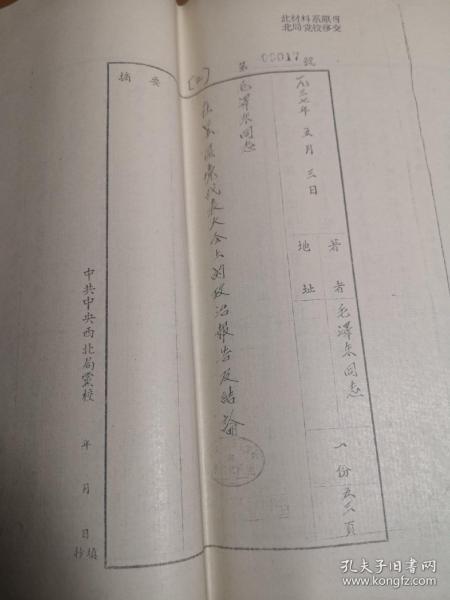 此材料系原西
北局党校移交
第00017號
一九三七年 五月 三日
著者 毛澤东同志
地址
一份 五三頁
毛澤东同志
在蘇區党代表大会上的政治報告及結論
摘要
中共中央西北局黨校 年 月 日
抄填
孔夫子旧书网